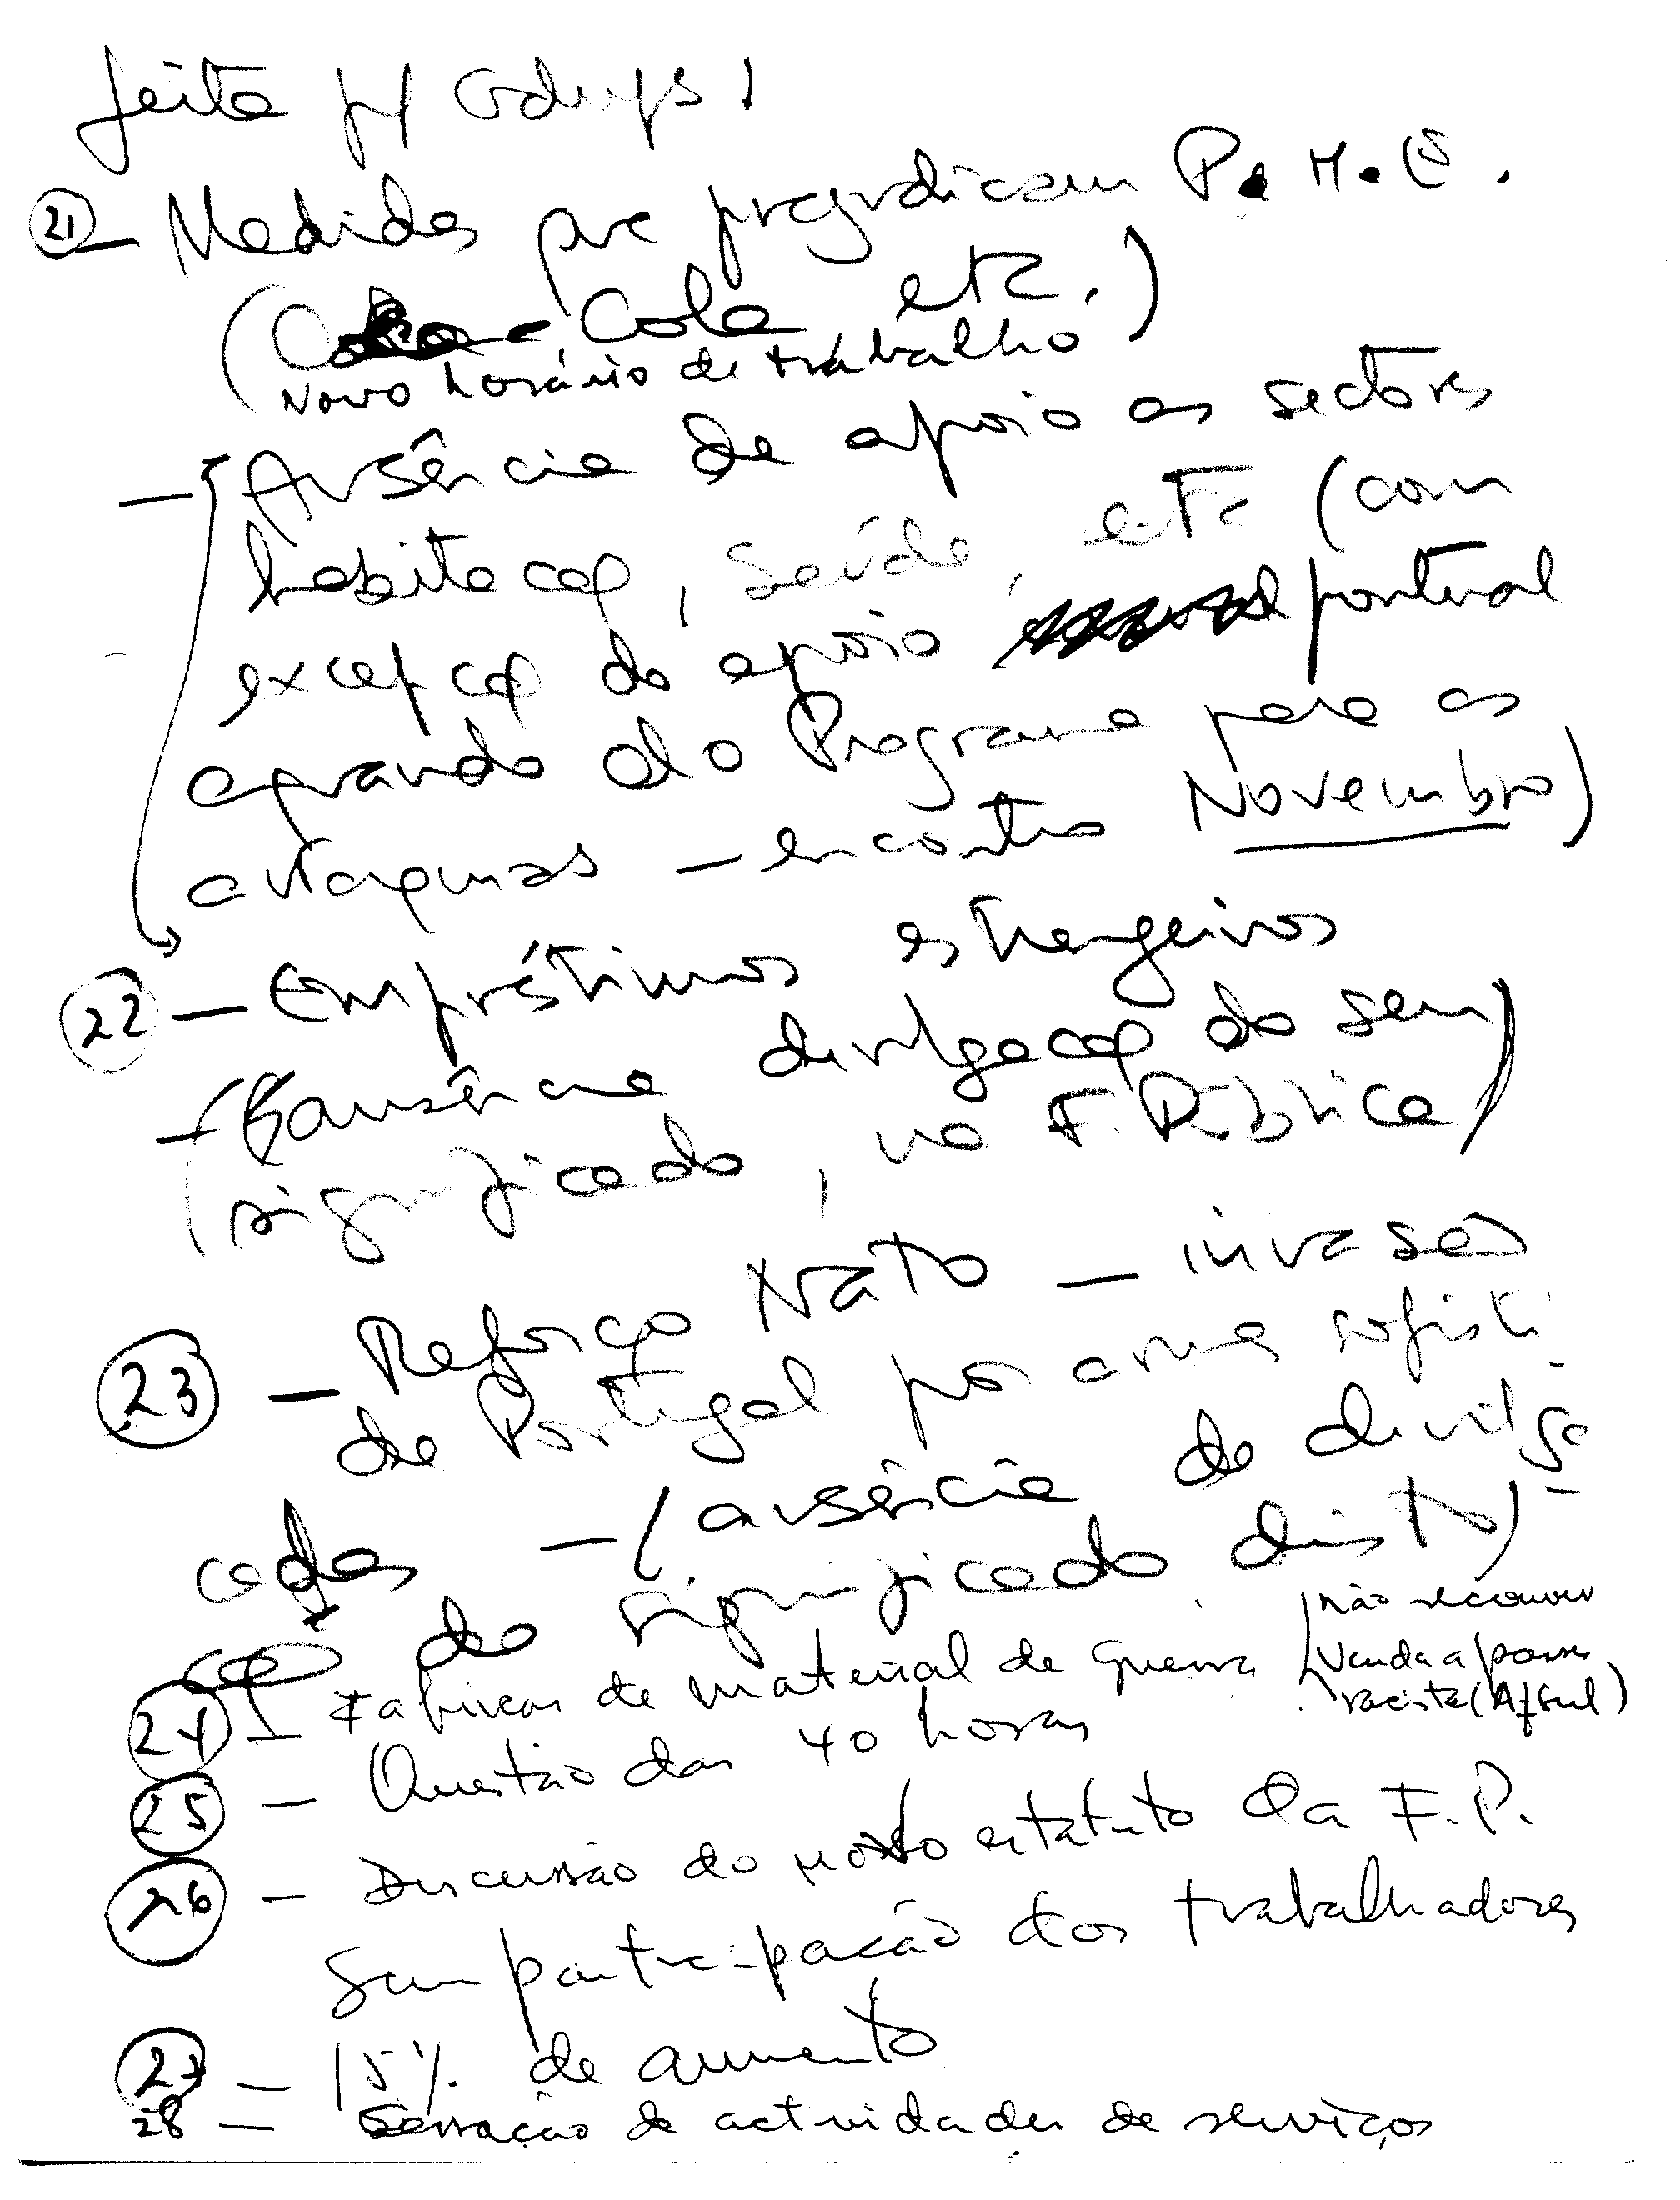 feita p/
21 – Medidas que prejudicam P. M. E.
(Coca-Cola etc.)
Novo horário de trabalho
– Ausência de apoio os sectores
habitação, Saúde, etc (com
excepção do apoio pontual
quando do Programa para as
autarquias – encontro Novembro)
22 – Empréstimos estrangeiros
– (ausência divulgação do seu
significado, na F. Pública)
23 – Reforço NATO – invasão
de Portugal por armas sofisti
cadas – (ausência de divulga-
ção do significado disto)
24 – Fábricas de material de guerra
não
venda a países
racista (Af Sul)
25 – Questão das 40 horas
26 – Discussão do novo estatuto da F.P.
sem participação dos trabalhadores
27 – 15% de aumento
28 – de actividades de serviços